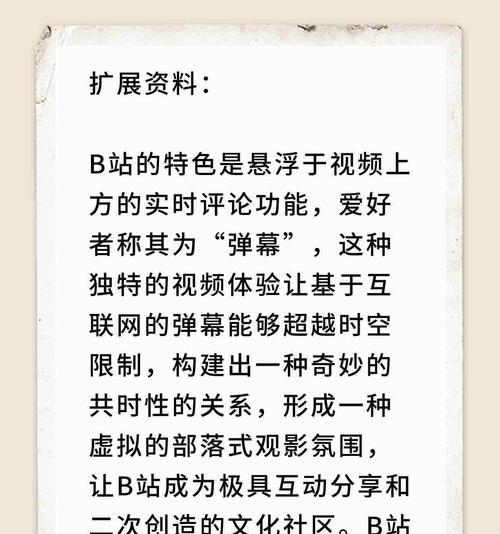 扩展资料：
B站的特色是悬浮于视频上
方的实时评论功能，爱好
者称其为“弹幕”，这种
独特的视频体验让基于互
联网的弹幕能够超越时空
限制，构建出一种奇妙的
共时性的关系，形成一种
虚拟的部落式观影氛围，
让B站成为极具互动分享和
二次创造的文化社区。B站